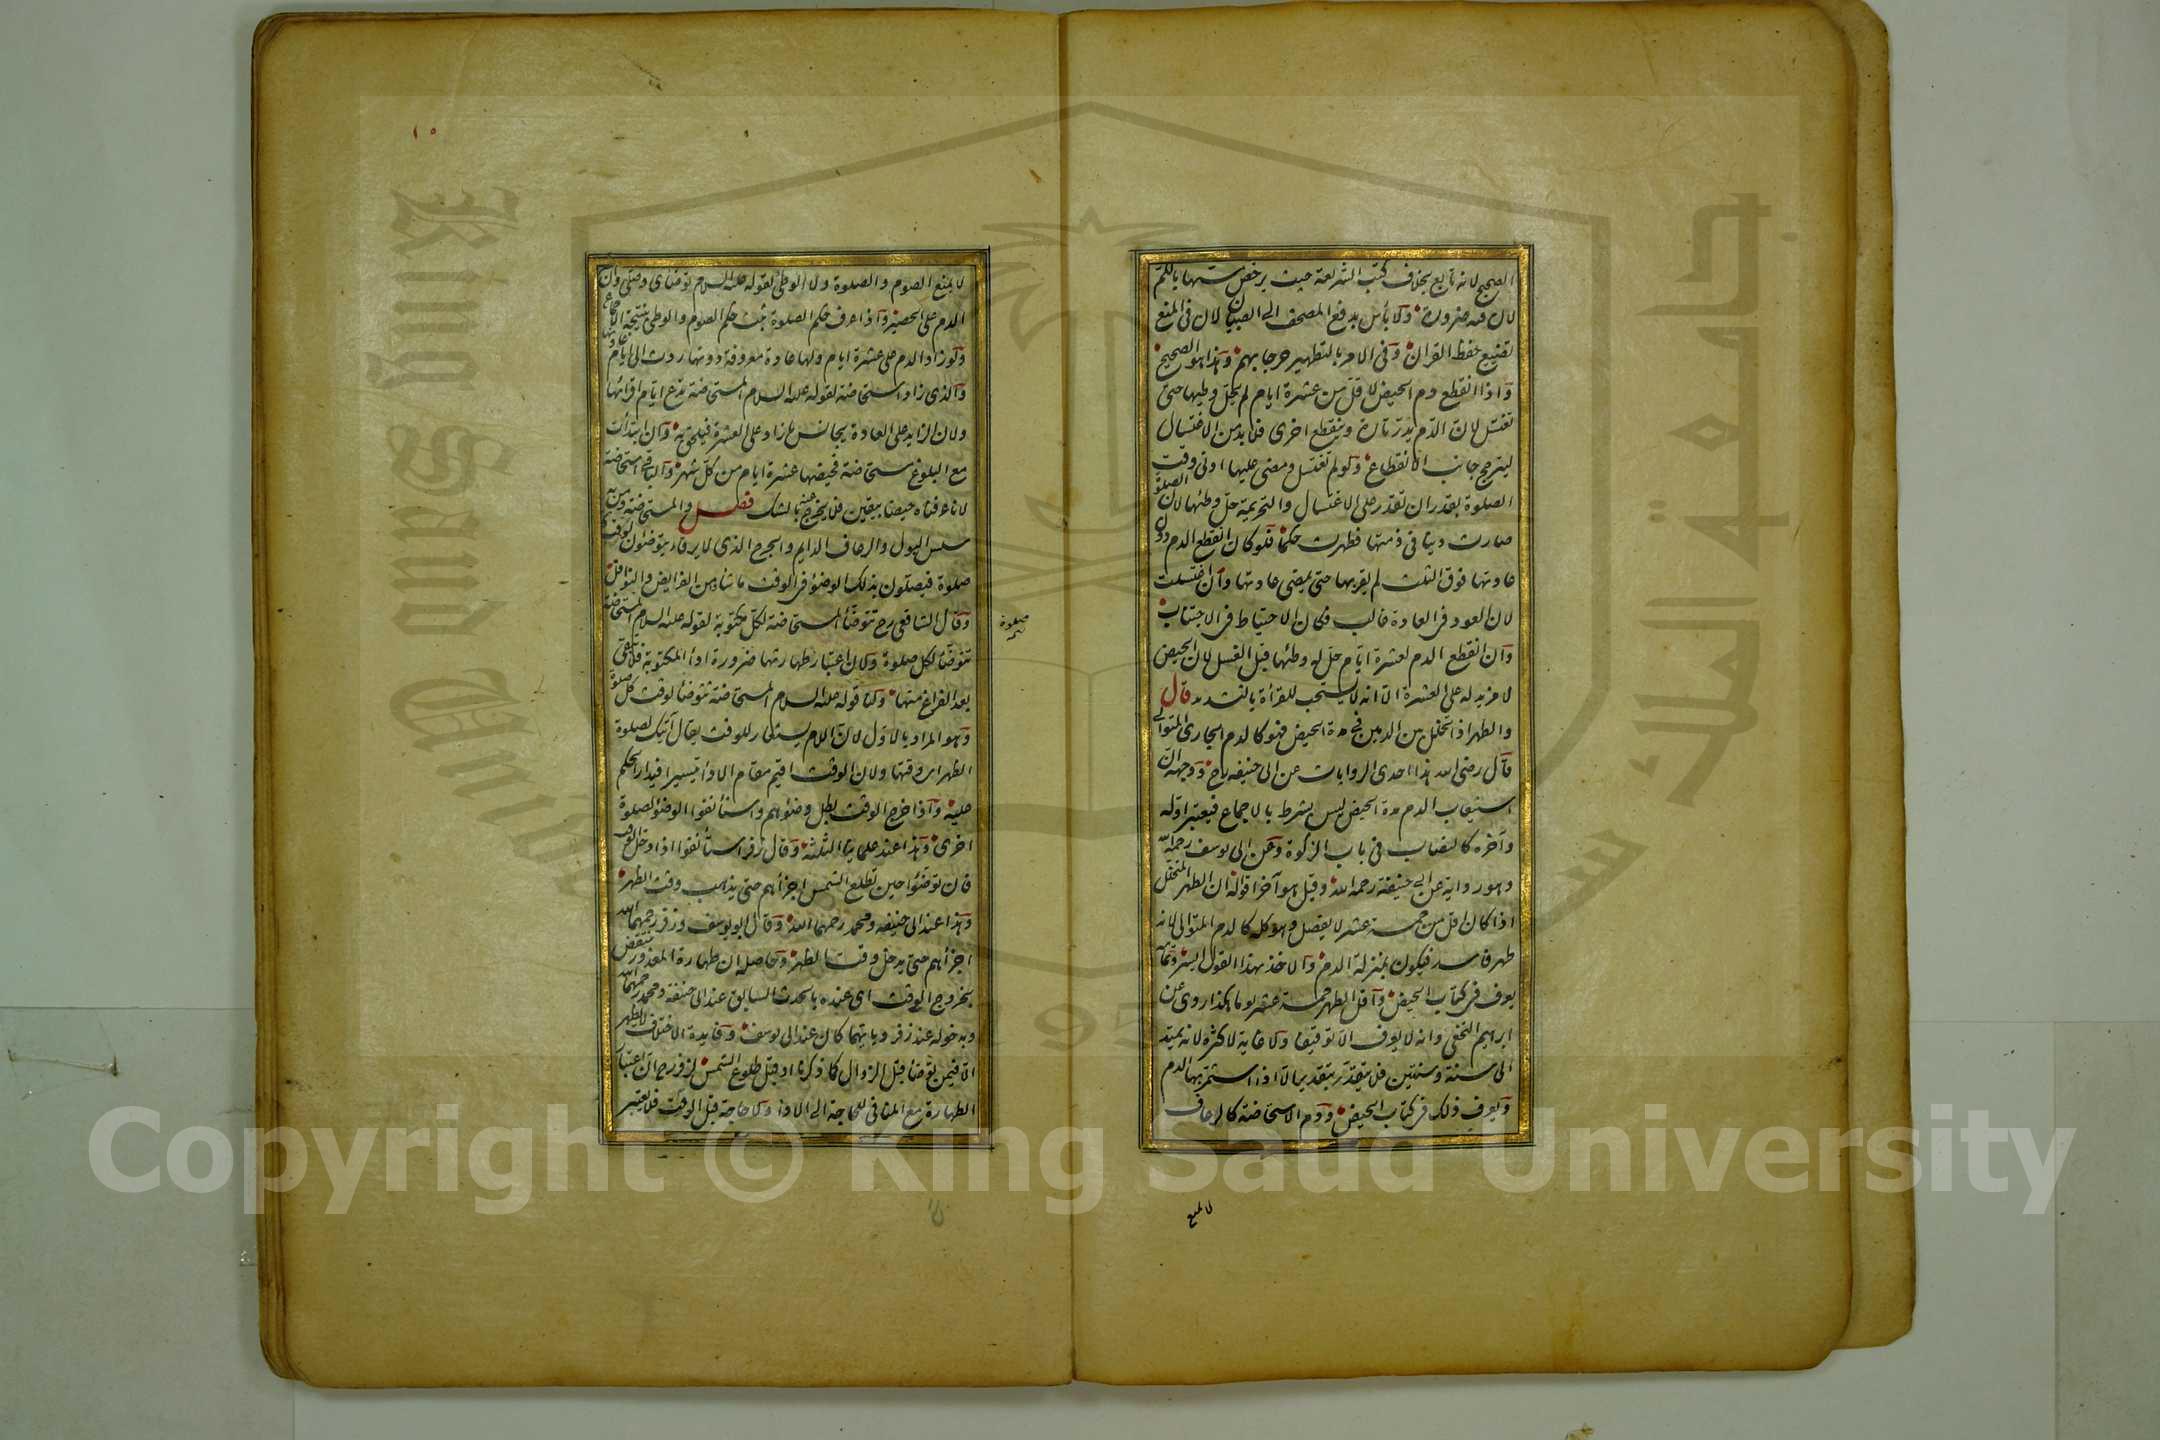 الصحيح لانه تابع بخلاف كتب الشريعة حيث يرخص مسها بالكم
لان فيه ضرورة ولا بأس بدفع المصحف الى الصبيان لان فى المنع
تضييع حفظ القران وفى الامر بالتطهير حرجا بهم وهذا هو الصحيح
واذا انقطع دم الحيض لاقل من عشرة ايام لم يحل وطيها حتى
تغتسل لان الدم يدر تارة وينقطع اخرى فلا بد من الاغتسال
ليترجح جانب الانقطاع ولو لم تغتسل ومضى عليها ادنى وقت
الصلوة بقدر ان تقدر على الاغتسال والتحريمة حل وطئها لان الصلوة
صارت دينا فى ذمتها فطهرت حكما فلو كان انقطع الدم دون
عادتها فوق الثلث لم يقربها حتى يمضى عادتها وان اغتسلت
لان العود فى العادة غالب فكان الاحتياط فى الاجتناب
وان انقطع الدم لعشرة ايام حل له وطئها قبل الغسل لان الحيض
لا مزيد له على العشرة الا انه لا يستحب للقرأة بالتشديد قال
والطهر اذا تخلل بين الدمين فى مدة الحيض فهو كالدم الجارى المتوالى
قال رضى الله هذا احدى الروايات عن ابى حنيفه رح ووجهه ان
استيعاب الدم مدة الحيض ليس بشرط بالاجماع فيعتبر اوله
وآخره كالنصاب فى باب الزكوة وعن ابى يوسف رحمه الله
وهو رواية عن ابى حنيفة رحمه الله وقيل هو آخر اقواله ان الطهر المتخلل
اذا كان اقل من خمسة عشر لا يفصل وهو كله كالدم المتوالى لانه
طهر فاسد فيكون بمنزلة الدم والاخذ بهذا القول ايسر وتمامه
يعرف فى كتاب الحيض واقل الطهر خمسة عشر يوما هكذا روى عن
ابراهيم النخعى وانه لا يعرف الا توقيفا ولا غاية لاكثره لانه يمتد
الى سنة وسنتين فلا يتقدر بتقدير الا اذا استمر بها الدم
ويعرف ذلك فى كتاب الحيض ودم الاستحاضة كالرعاف
لا يمنع
١٠
لا يمنع الصوم والصلوة ولا الوطئ لقوله عليه السلام توضأى وصلى وان
الدم على الحصير واذا عرف حكم الصلوة ثبت حكم الصوم والوطى بنتيجة الاجماع
ولو زاد الدم على عشرة ايام ولها عادة معروفة دونها ردت الى ايام عادتها
والذى زاد استحاضة لقوله عليه السلام المستحاضة تدع ايام اقرائها
ولان الزايد على العادة يجانس ما زاد على العشرة فيلحق به وان ابتدأت
مع البلوغ مستحاضة فحيضها عشرة ايام من كل شهر والباقى استحاضة
لانا عرفناه حيضا بيقين فلا يخرج عنه بالشك فصل والمستحاضة ومن به
سلس البول والرعاف الدايم والجرح الذى لا يرقاء يتوضئون لوقت كل
صلوة فيصلون بذلك الوضؤ فى الوقت ما شاءو من الفرايض والنوافل
وقال الشافعى رح تتوضأ المستحاضة لكل مكتوبة لقوله عليه السلام المستحاضة
تتوضأ لكل صلوة ولان اعتبار طهارتها ضرورة اداء المكتوبة فلا يبقى
بعد الفراغ منها ولنا قوله عليه السلام المستحاضة تتوضأ لوقت كل صلوة
وهو المراد بالاول لان اللام يستعار للوقت يقال آتيك لصلوة
الظهر اى وقتها ولان الوقت اقيم مقام الاداء تيسيرا فيدار الحكم
عليه واذا خرج الوقت بطل وضئوهم واستأنفوا الوضؤ لصلوة
اخرى وهذا عند علماينا الثلثة وقال زفر استأنفوا اذا دخل الوقت
فان توضئوا حين تطلع الشمس اجزأهم حتى يذهب وقت الظهر
وهذا عند ابى حنيفه ومحمد رحمهما الله وقال ابو يوسف وزفر رحمهما الله
اجزأهم حتى يدخل وقت الظهر وحاصله ان طهارة المعذور ينتقض
بخروج الوقت اى عنده بالحدث السابق عند ابى حنيفة ومحمد رحمهما الله
وبدخوله عند زفر وبايهما كان عند ابى يوسف وفايدة الاختلاف لا يظهر
الا فيمن توضأ قبل الزوال كما ذكرنا او قبل طلوع الشمس لزفر رح ان اعتبار
الطهارة مع المنافى للحاجة الى الاداء ولا حاجة قبل الوقت فلا يعتبر
صلوة
King Saud University
جامعة الملك سعود
1957
Copyright © King Saud University